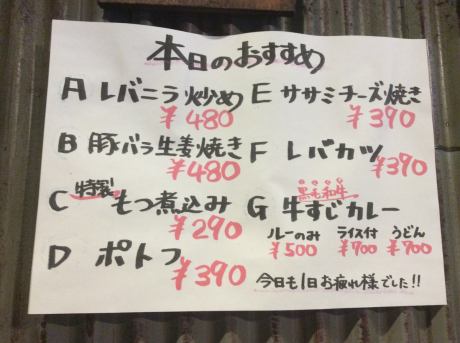 本日のおすすめ
A レバニラ炒め
¥480
B 豚バラ生姜焼き
¥480
C 特製もつ煮込み
¥290
D ポトフ
¥390
E ササミチーズ焼き
¥390
F レバカツ
¥390
黒毛和牛
G 牛すじカレー
ルーのみ ライス付 うどん
¥500 ¥700 ¥700
今日も1日お疲れ様でした!!